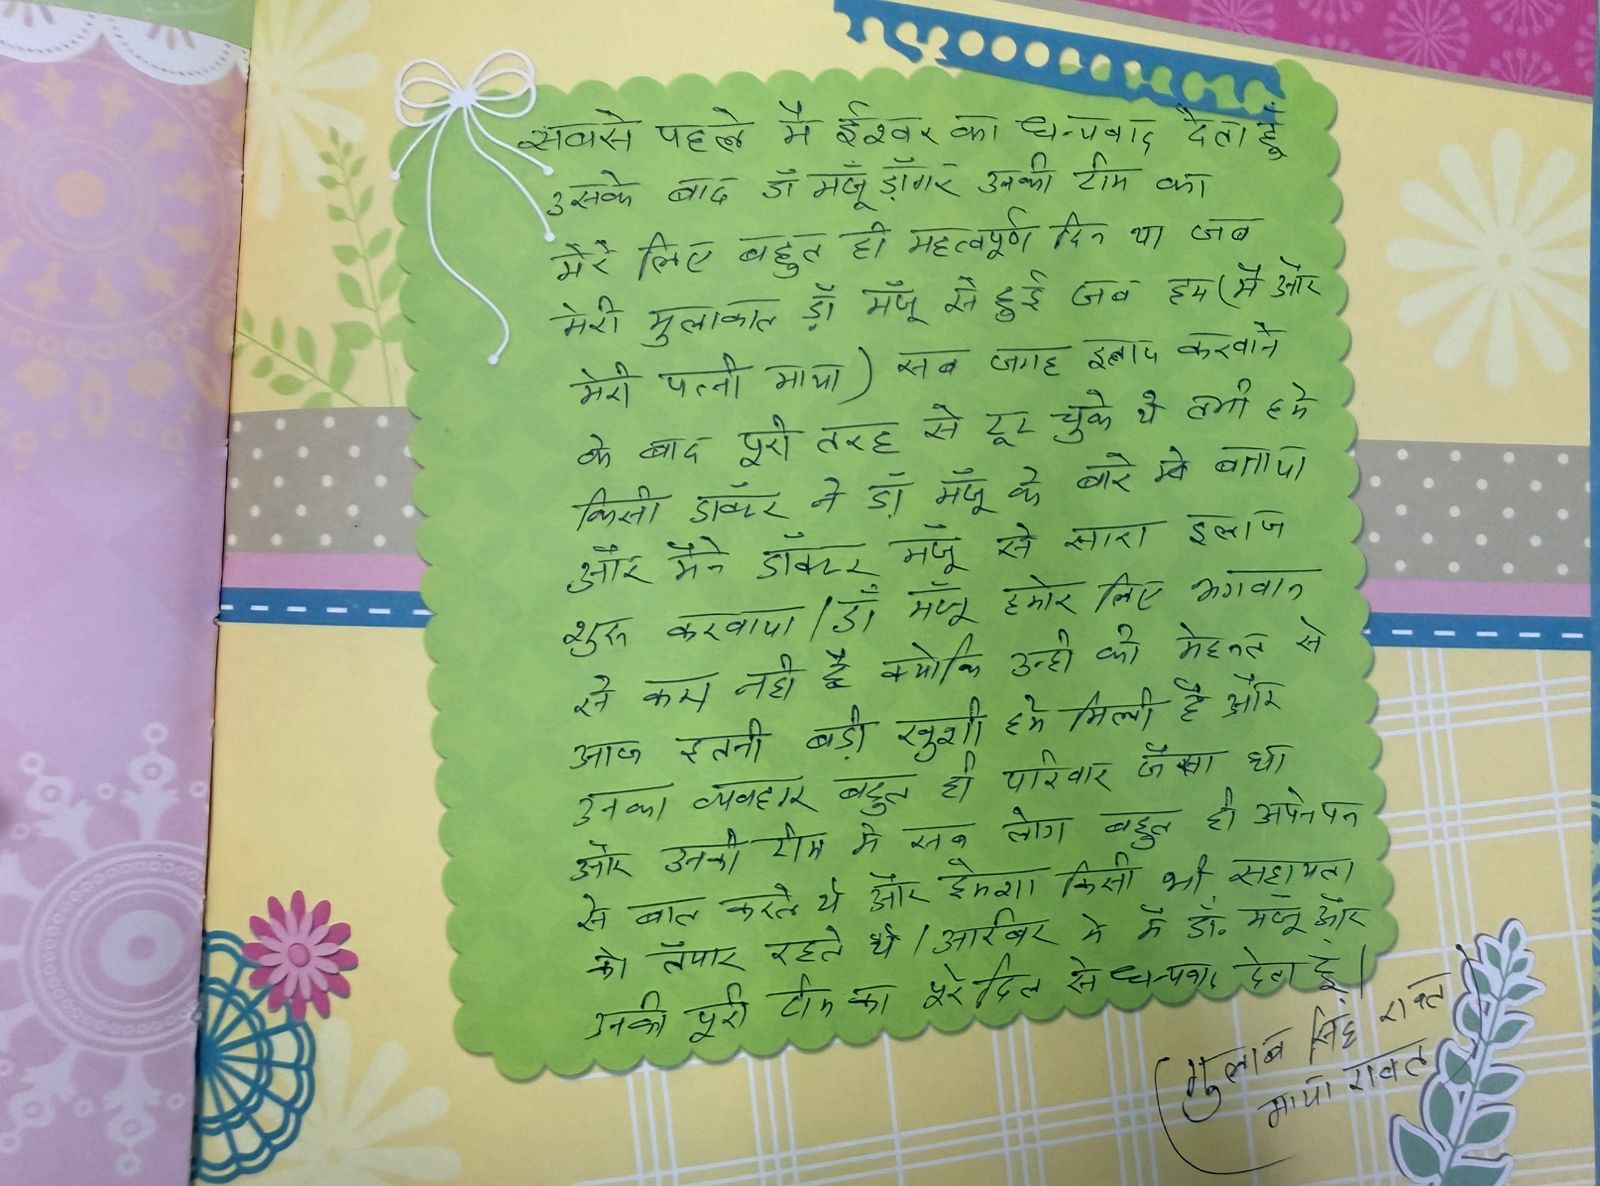 सबसे पहले मैं ईश्वर का धन्यवाद देता हूँ
उसके बाद डॉ मंजू डाँगर उनकी टीम का
मेरे लिए बहुत ही महत्वपूर्ण दिन था जब
मेरी मुलाकात डॉ मंजू से हुई जब हम (मैं और
मेरी पत्नी माया) सब जगह इलाज करवाने
के बाद पूरी तरह से टूट चुके थे तभी हमे
किसी डॉक्टर ने डॉ मंजू के बारे मे बताया
और मैंने डॉक्टर मंजू से सारा इलाज
शुरू करवाया। डॉ मंजू हमारे लिए भगवान
से कम नही है क्योकि उन्ही की मेहनत से
आज इतनी बड़ी खुशी हमे मिली है और
उनका व्यवहार बहुत ही परिवार जैसा था
और उनकी टीम मे सब लोग बहुत ही अपनेपन
से बात करते थे और हमेशा किसी भी सहायता
को तैयार रहते थे। आखिर मे मैं डॉ. मंजू और
उनकी पूरी टीम का पूरे दिल से धन्यवाद देता हूँ।
(गुलाब सिंह रावत
माया रावत)